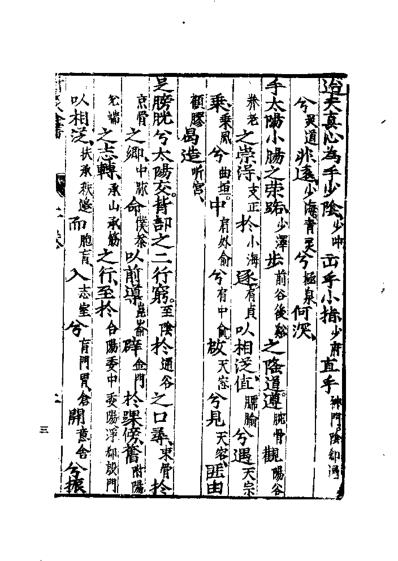 迨夫真心為手少陰少冲出乎小指少府直乎神門陰郄
兮灵道非遠少海青灵兮極泉何深
手太陽小腸之荣路少澤步前谷後谿之隆道遵腕骨觀陽谷
养老之崇淂支正於小海逐肩貞以相泛值臑腧兮遇天宗
乘乘風兮曲垣中肩外俞兮肩中俞啟天窓兮見天容匪由
顴膠曷造听宫
足膀胱兮太陽交背部之二行窮至陰於通谷之口尋束骨於
京骨之卿申脉命僕參以前導崑崙辟金門於踝傍奮附陽
之志轉承山承筋之行至於合陽委中委陽浮郄殷門
以相泛扶承秩邊而胞肓入志室兮肓門胃倉開意舍兮振
三